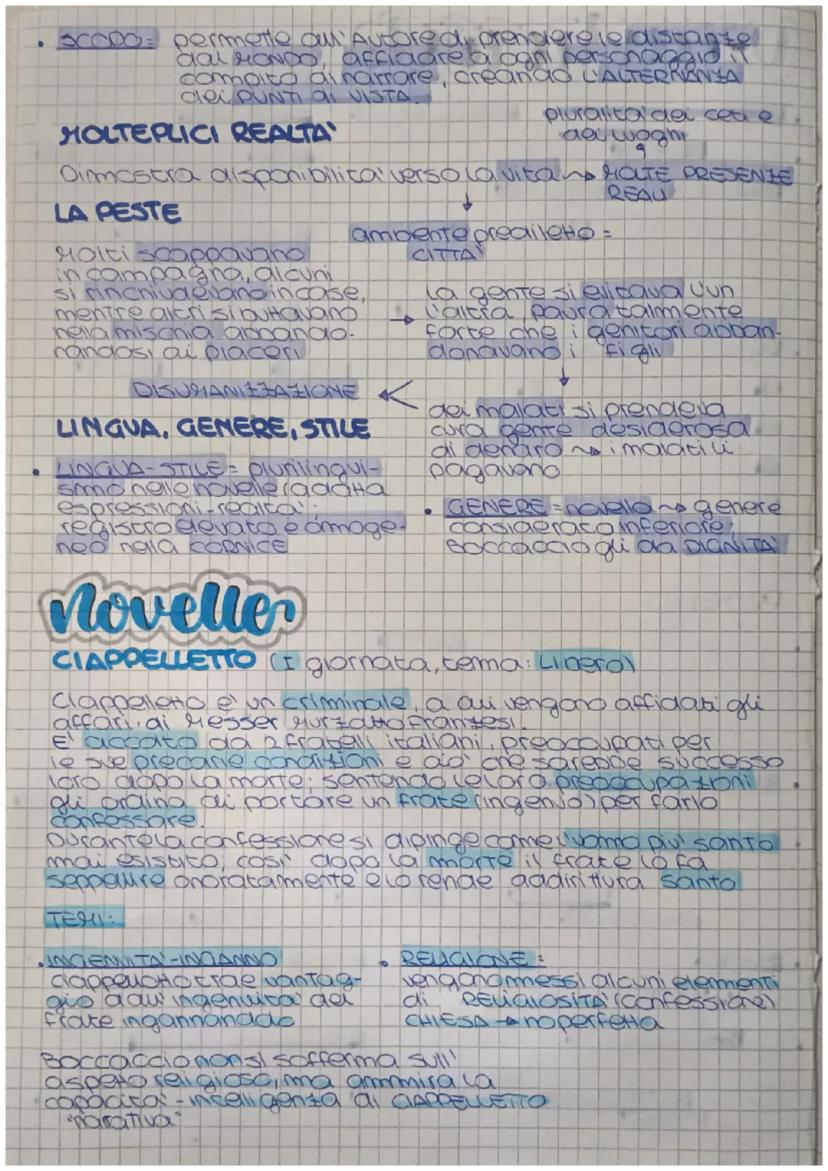 • SCOPO= permette all'Autore di prendere le distanze
dal MONDO, affidare a ogni personaggio il
compito di narrare, creando L'ALTERNANZA
dei PUNTI di VISTA.
MOLTEPLICI REALTA'
pluralita' dei ceti e
dei luoghi
Dimostra disponibilita' verso la vita ~> MOLTE PRESENZE
REALI
LA PESTE
ambiente prediletto =
CITTA'
Molti scappavano
in campagna, alcuni
si rinchiudevano in case,
mentre altri si buttavano
nella mischia abbando-
nandosi ai piaceri
→ la gente si evitava l'un
l'altra, paura talmente
forte che i genitori abban-
donavano i figli
DISUMANIZZAZIONE
dei malati si prendeva
cura gente desiderosa
di denaro ~> i malati li
pagavano
LINGUA, GENERE, STILE
• LINGUA-STILE= plurilingui-
smo nelle novelle (adatta
espressioni-realta';
registro elevato e omoge-
neo nella CORNICE
• GENERE=novella ~> genere
considerato inferiore,
Boccaccio gli da DIGNITA'
novelle
CIAPPELLETTO (I giornata, tema: Libero)
Ciappelletto e' un criminale, a cui vengono affidati gli
affari di Messer Murzatto franzesi.
E' accolto da 2 fratelli italiani, preoccupati per
le sue precarie condizioni e cio' che sarebbe successo
loro dopo la morte; sentendo le loro preoccupazioni
gli ordina di portare un frate (ingenuo) per farlo
confessare.
Durante la confessione si dipinge come l'uomo piu' santo
mai esistito, cosi' dopo la morte il frate lo fa
seppellire onoratamente e lo rende addirittura santo
TEMI:
• INGENUITA'-INGANNO
ciappelletto trae vantag-
gio dall'ingenuita' del
frate ingannandolo
• RELIGIONE:
vengono messi alcuni elementi
di RELIGIOSITA' (confessione)
CHIESA → no perfetta
Boccaccio non si sofferma sull'
aspetto religioso, ma ammira la
capacita'-intelligenza di CIAPPELLETTO
"narrativa"